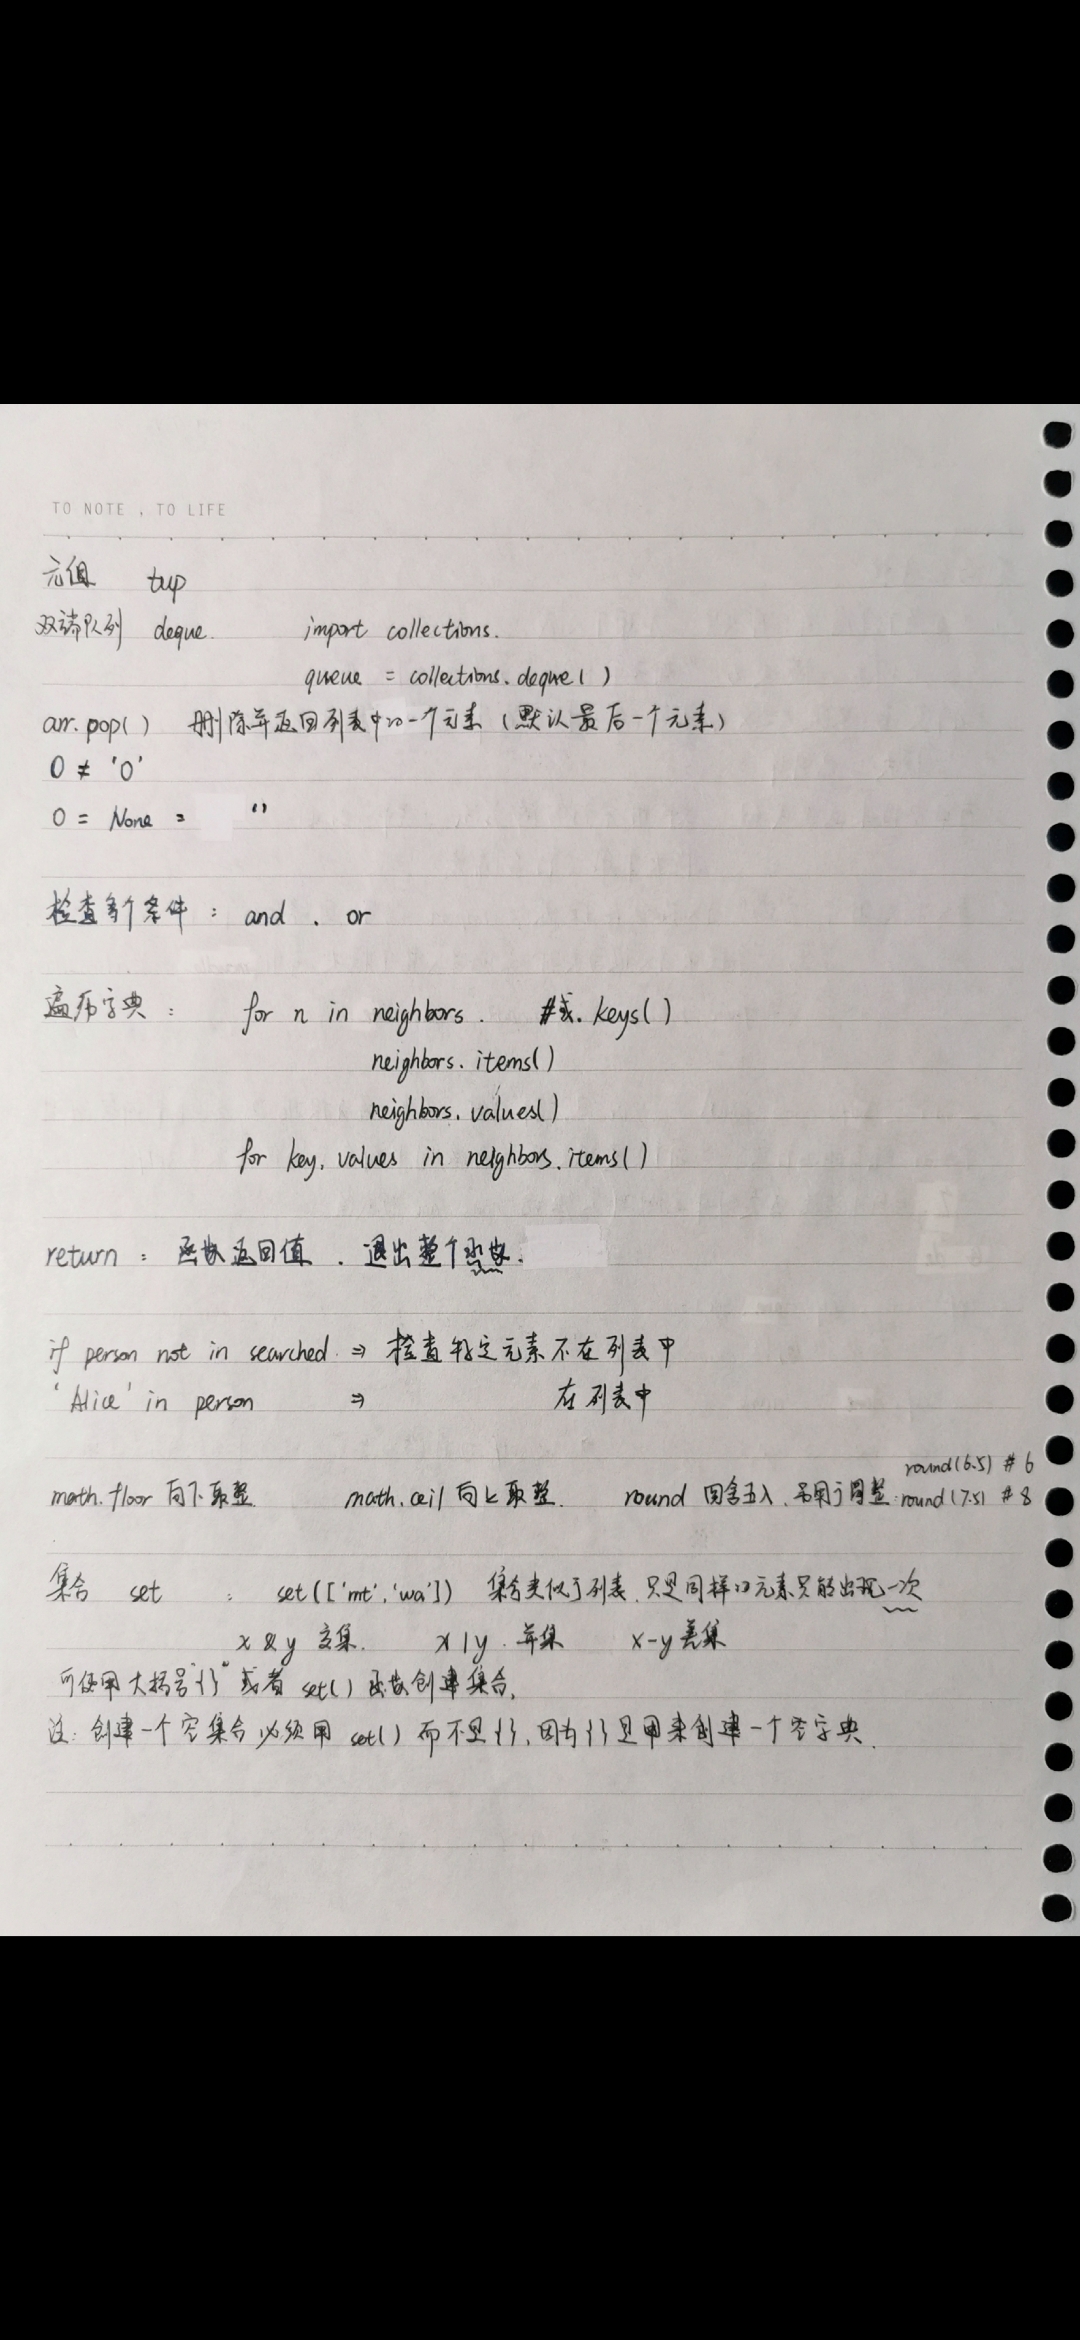 TO NOTE , TO LIFE
元组 tup
双端队列 deque. import collections.
queue = collections.deque( )
arr.pop( ) 删除并返回列表中的一个元素（默认最后一个元素）
0 ≠ '0'
0 = None = ''
检查多个条件 : and . or
遍历字典 : for n in neighbors . #或. keys( )
neighbors. items( )
neighbors. values( )
for key, values in neighbors. items( )
return : 函数返回值 . 退出整个函数.
if person not in searched. ⇒ 检查特定元素不在列表中
'Alice' in person ⇒ 在列表中
round(6.5) # 6
math.floor 向下取整 math.ceil 向上取整. round 四舍五入. : round(7.5) # 8
集合 set : set(['mt', 'wa']) 集合类似于列表. 只是同样的元素只能出现一次
x & y 交集. x | y . 并集 x-y 差集
可使用大括号"{}"或者 set( ) 函数创建集合.
注: 创建一个空集合必须用 set( ) 而不是{}, 因为{}是用来创建一个空字典.